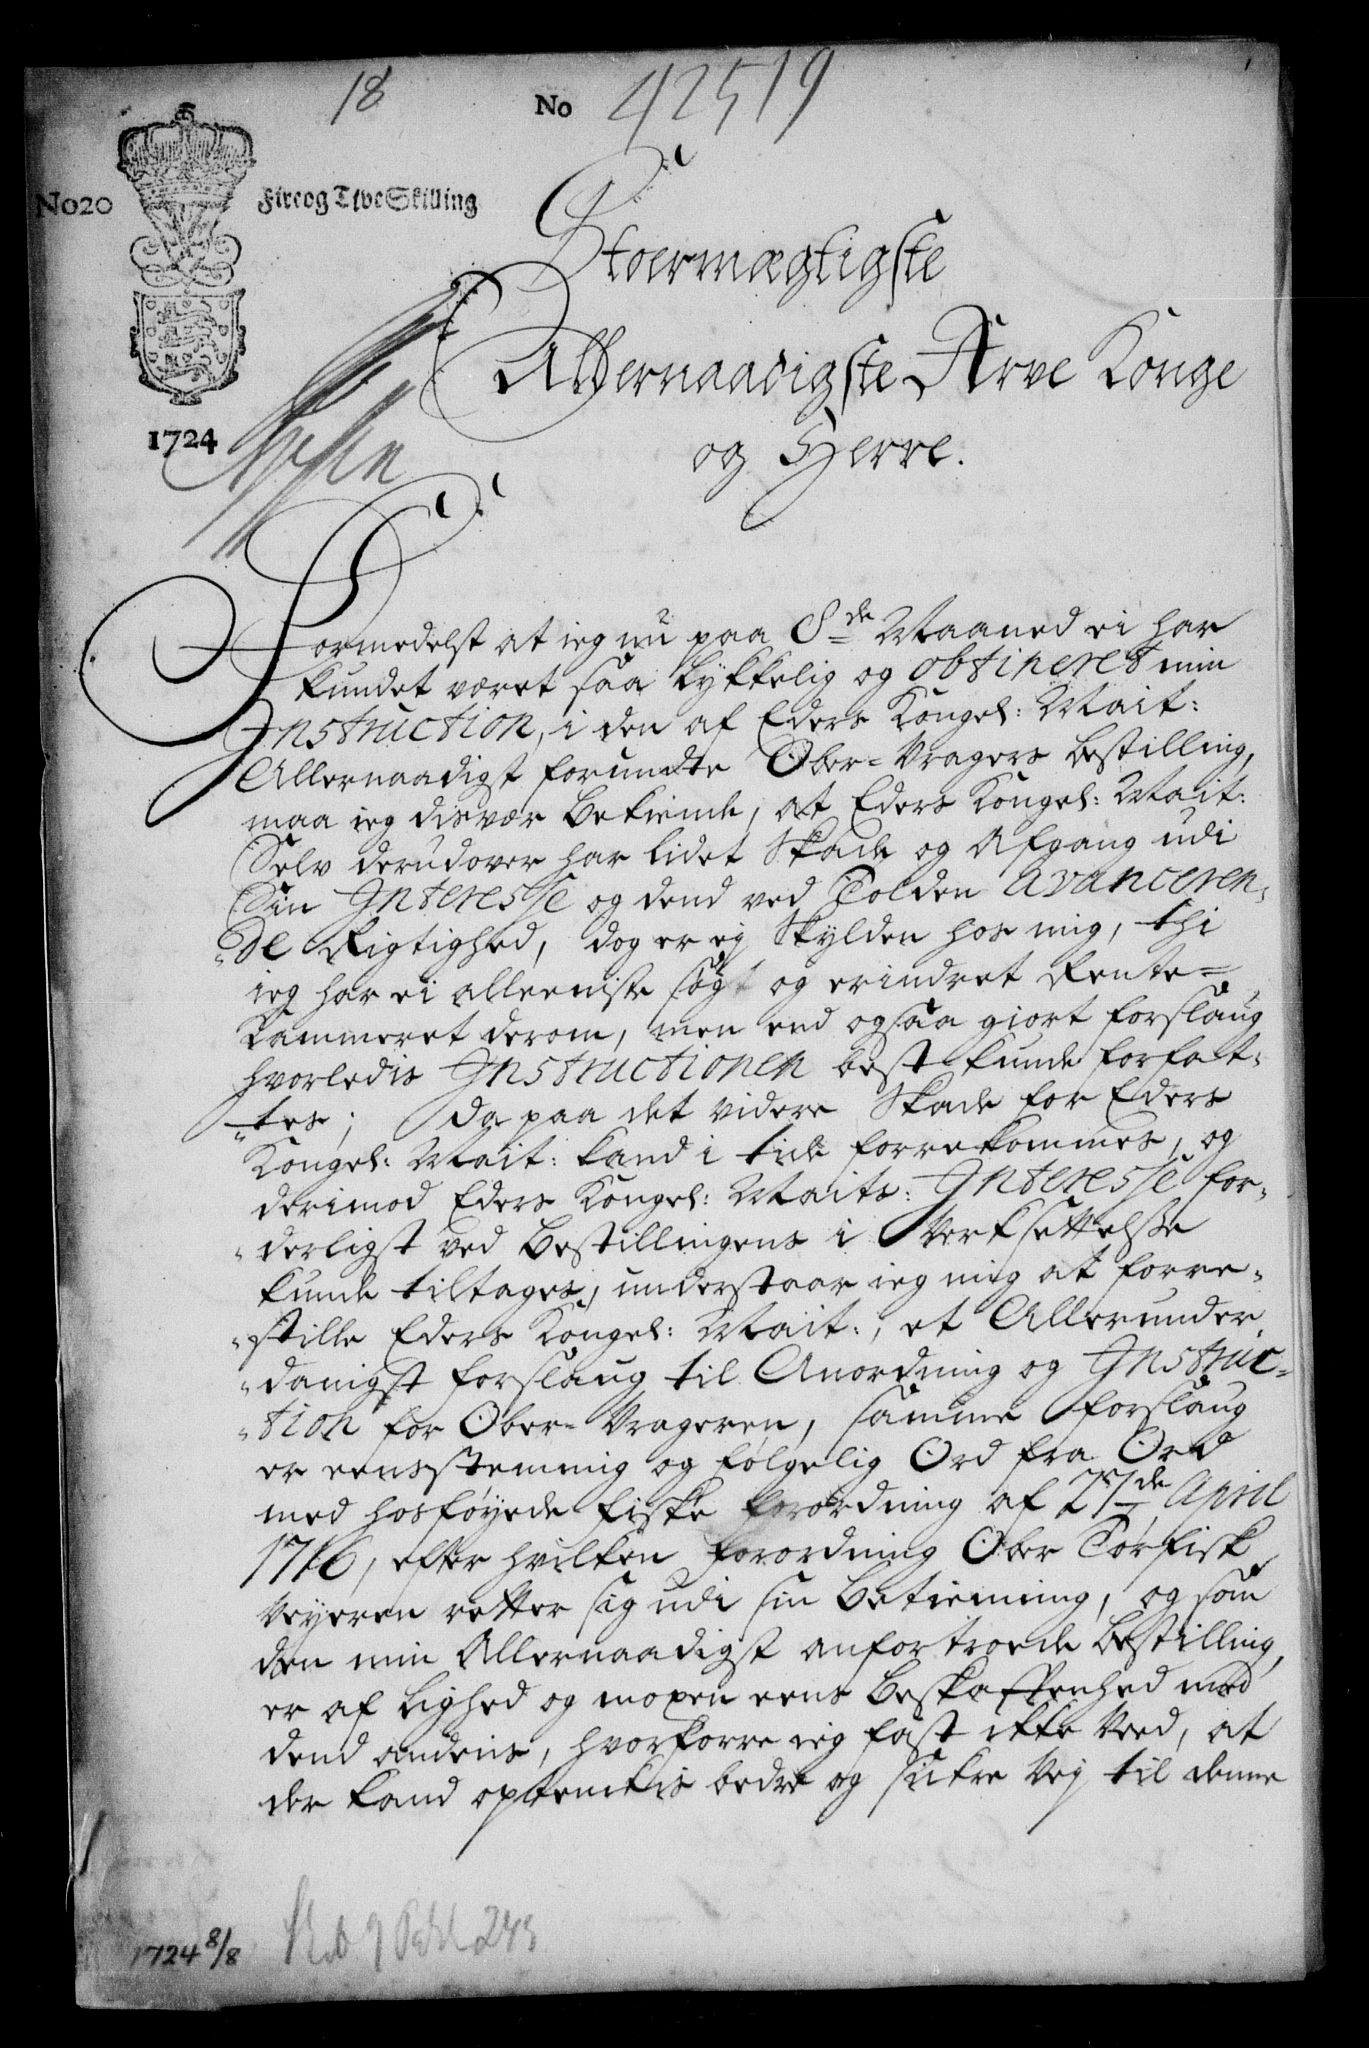 18
No 42519
No20
Fire og Tive Skilling
Stoermægtigste
Allernaadigste Arve Konge
og Herre.
1724
Formedelst at ieg nu paa 8de Maaned ei har
kundet været saa lykkelig og obtineret min
Instruction, i den af Eders Kongel: Mait:
Allernaadigst forundte Ober-Vragers bestilling,
maa ieg disvær bekiende, at Eders Kongel: Mait:
Selv derudover har lidet Skade og Afgang udi
Sin Interesse og dend ved Tolden avanceren-
de Rigtighed, dog er ej Skylden hos mig, thi
ieg har ei alleeniste søgt og erindret Rente-
Kammeret derom, men end ogsaa giort forslaug
hvorledis Instructionen best kunde forfat-
tes; Da paa det videre Skade for Eders
Kongel: Mait: kand i tide forrekommes, og
derimod Eders Kongel: Maits: Interesse for-
derligst ved bestillingens i Verksettelse
kunde tiltages, understaar ieg mig at forre-
stille Eders Kongel: Mait:, et Allerunder
danigst forslaug til Anordning og Instruc-
tion for Ober-Vrageren, samme forslaug
er eensstemmig og følgelig Ord fra Ord
med hosføyede fiske forordning af 27de April
1716, efter hvilken forordning Ober Tørfisk
Veyeren retter sig udi sin betienning, og som
den min Allernaadigst anfortroede bestilling,
er af lighed og moxen eens beskaffenhed med
dend andens, hvorforre ieg fast ikke Veed, at
der kand optenckis bedre og sickre Vej til denne
1724 8/8